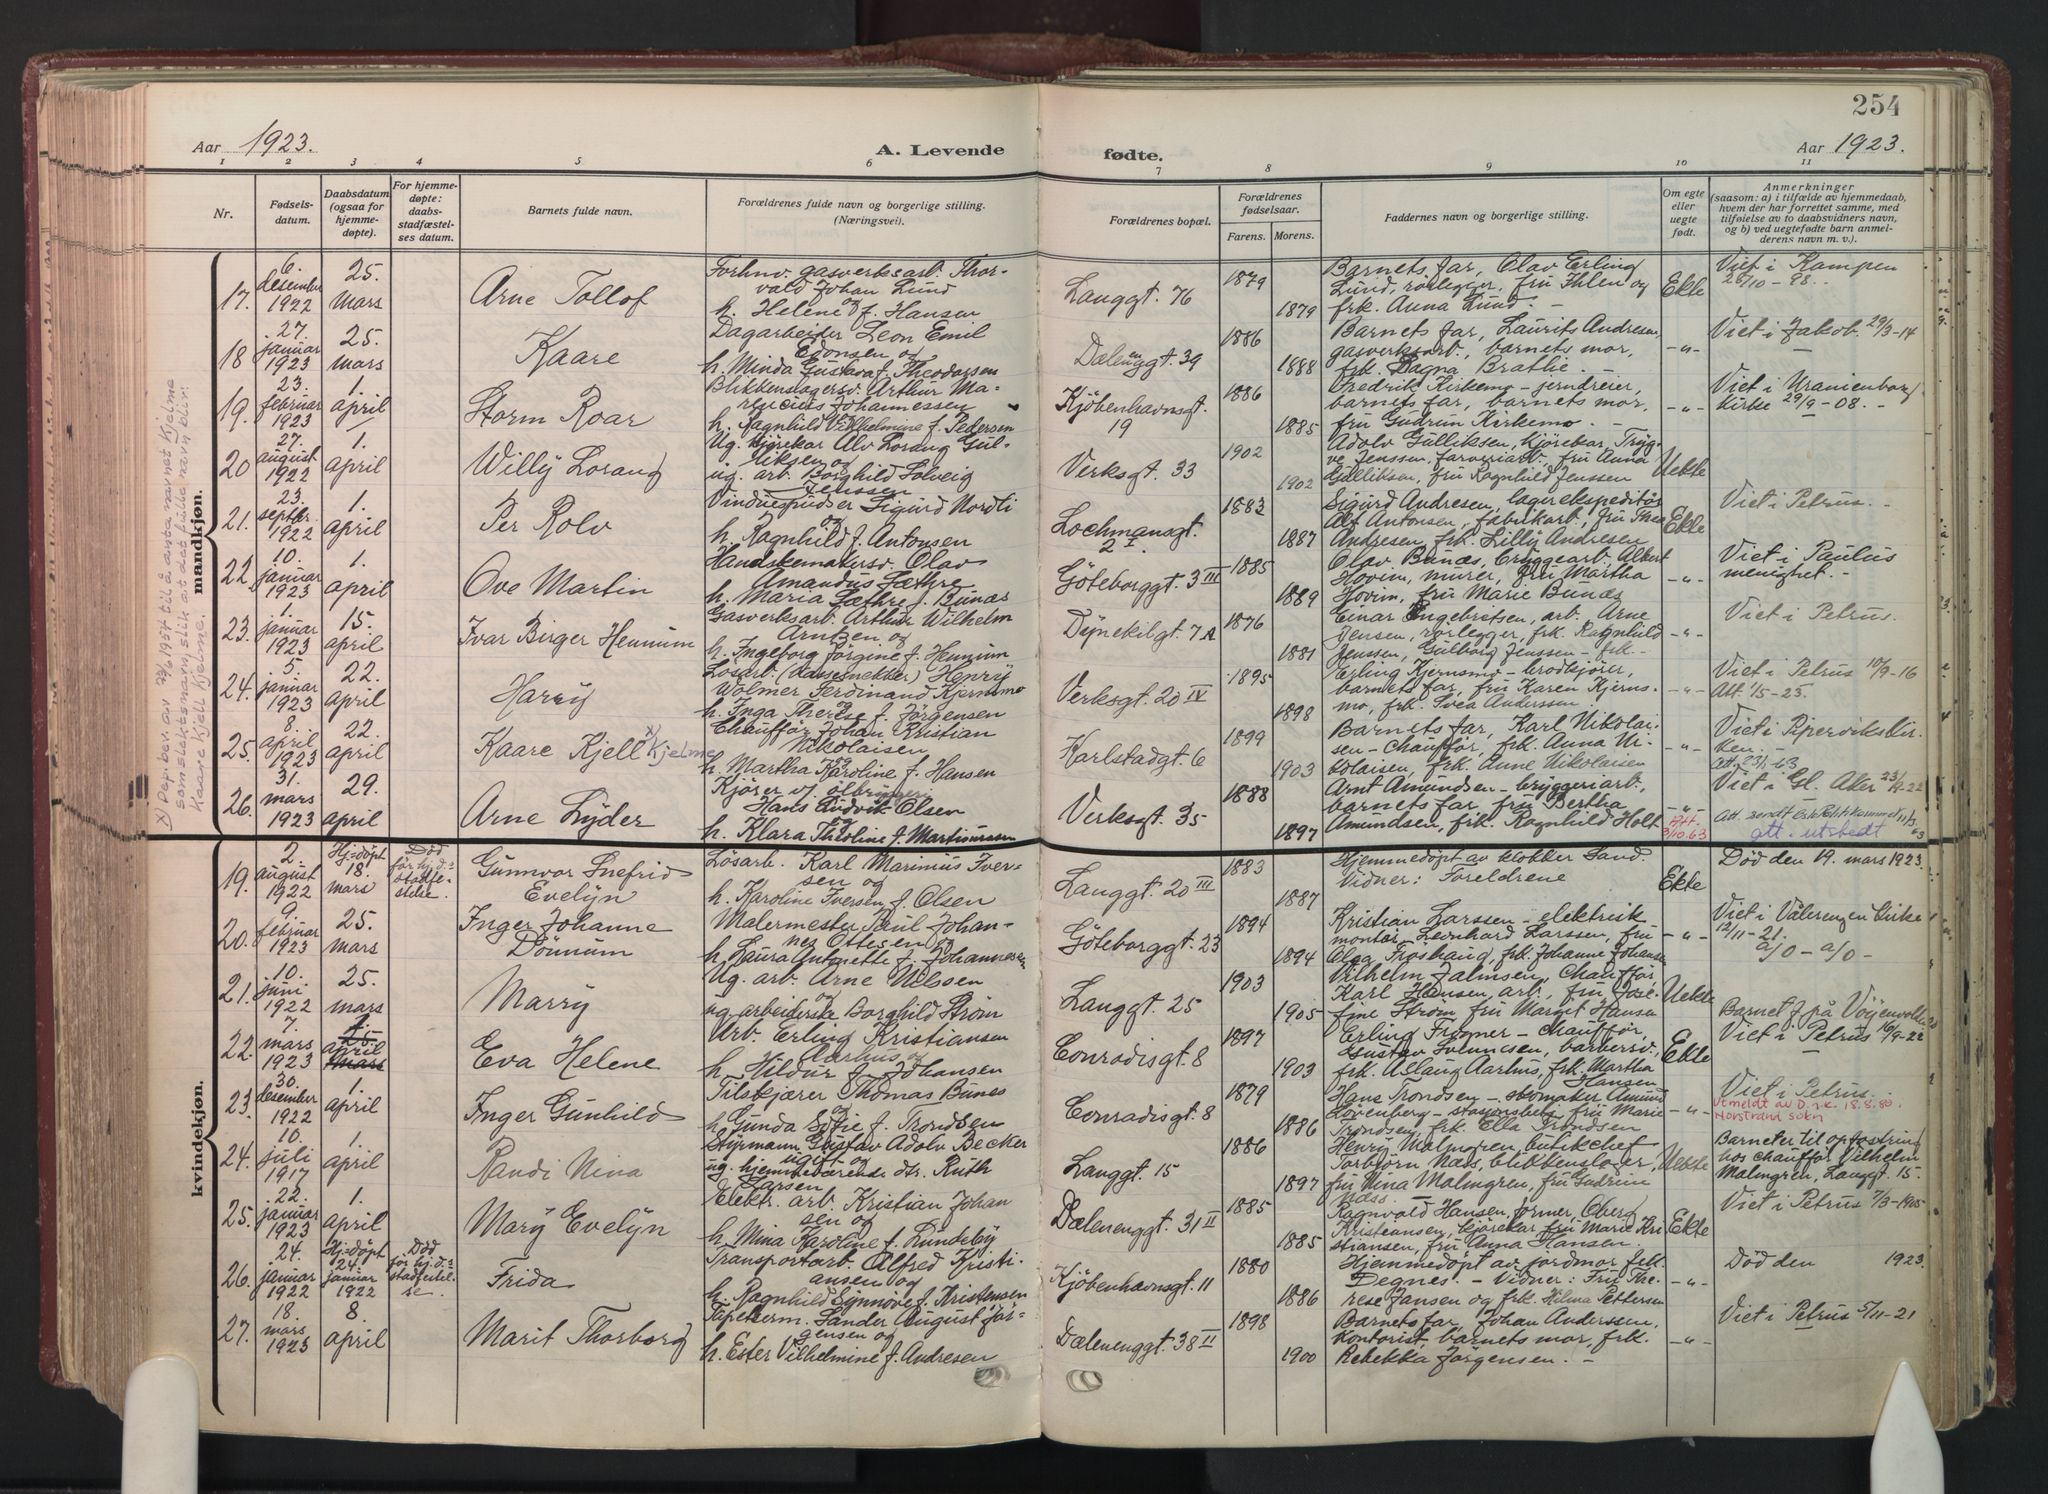 254
Aar 1923.
A. Levende
fødte.
Aar 1923.
1 2 3 4 5 6 7 8 9 10 11
Nr.
Fødsels-
datum.
Daabsdatum
(ogsaa for
hjemme-
døpte).
For hjemme-
døpte:
daabs-
stadfæstel-
ses datum.
Barnets fulde navn.
Forældrenes fulde navn og borgerlige stilling.
(Næringsvei).
Forældrenes bopæl.
Forældrenes
fødselsaar.
Farens. Morens.
Faddernes navn og borgerlige stilling.
Om egte
eller
uegte
født.
Anmerkninger
(saasom: a) i tilfælde av hjemmedaab,
hvem der har forrettet samme, med
tilføielse av to daabsvidners navn,
og b) ved uegtefødte barn anmel-
derens navn m. v.).
mandkjøn.
x) Dep. bev. av 23/6 1954 til å anta navnet Kjelme
som slektsnavn, slik at det fulle navn blir:
Kaare Kjell Kjelme.
17. 6. desember 1922
25. mars
Arne Tollof
Forhnv. gasverksarb. Thor-
vald Johan Lund
og
h. Helene f. Hansen
Langgt. 76
1879
1879
Barnets far, Olav Erling
Lund, rørlegger, fru Ihlen og
frk. Anna Lund. -
Ekte
Viet i Kampen
26/10 - 98. -
18. 27. januar 1923
25. mars
Kaare
Dagarbeider Leon Emil
Edonsen og
h. Minda Gustava f. Theodorsen
Dælenenggt. 39
1886
1888
Barnets far, Laurits Andresen,
gasverksarb., barnets mor,
frk. Dagna Brathe. -
-„-
Viet i Jakob. 29/3-14
19. 23. februar 1923
1. april
Storm Roar
Blikkenslagersv. Arthur Ma-
rencius Johannessen
og
h. Ragnhild Vilhelmine f. Pedersen
Kjøbenhavnsgt.
19
1886
1885
Fredrik Kirkemo - jerndreier,
barnets far, barnets mor,
fru Gudrun Kirkemo. -
-„-
Viet i Uranienborg
kirke 29/9 - 08. -
20 27. august 1922
1. april
Willy Lorang
Ug. kjørekar Alv Lorang Gul-
liksen og
ug. arb. Borghild Solveig
Jenssen
Verksgt. 33
1902
1902
Adolv Gulliksen, kjørekar, Tryg-
ve Jenssen, farveriarb. fru Anna
Gulliksen, fru Ragnhild Jenssen
Uekte
21. 23. septbr. 1922
1. april
Per Rolv
Vinduespudser Sigurd Nordli
og
h. Ragnhild f. Antonsen
Lochmansgt.
2 I.
1883
1887
Sigurd Andresen, lagerekspeditør
Alf Antonsen, fabrikarb., fru Thea
Andresen, frk. Lilly Andresen
Ekte
Viet i Petrus. -
22. 10. januar 1923
1. april
Ove Martin
Hanskemakersv. Olav
Amandus Sæthre
h. Maria Sæthre f. Bunæs
Göteborggt. 3 III
1885
1889
Olav Bunæs, bryggearb. Albert
Hovim, murer, fru Martha
Hovim, fru Marie Bunæs
-„-
Viet i Paulus
menighet. -
23. 1. januar 1923
15. april
Ivar Birger Hennum
Gasverksarb. Arthur Wilhelm
Arntzen og
h. Ingeborg Jörgine f. Hennum
Dynekilgt. 7A
1876
1881
Einar Engebretsen, arb. Arne
Jensen, rørlegger, frk. Ragnhild
Jenssen, Gulborg Jenssen - frk. -
-„-
Viet i Petrus.
24. 5. januar 1923
22. april
Harry
Løsarb. (Kassesnekker) Henry
Wolmer Ferdinand Kjernsmo
og
h. Inga Therese f. Jörgensen
Verksgt. 20 IV
1895
1898
Erling Kjernsmo - brødkjører,
barnets far, fru Karen Kjerns-
mo, frk. Svea Anderssen
-„-
Viet i Petrus 10/9 - 16
Att. 1/5 - 23.
25. 8. april 1923
22. april
Kaare Kjell x) Kjelme
Chauffør Johan Kristian
Nikolaisen
og
h. Martha Karoline f. Hansen
Karlstadgt. 6
1899
1903
Barnets far, Karl Nikolai-
sen - Chauffør, frk. Anna Ni-
kolaisen, frk. Anne Nikolaisen
-„-
Viet i Pipervikskir-
ken. -
Att. 23/1-63
26. 31. mars 1923
29. april
Arne Lyder
Kjører v/ ølbryggeri
Hans Ludvik Olsen
og
h. Klara Thioline f. Martiunssen
Verksgt. 35
1888
1897
Arnt Amundsen - bryggeriarb.,
barnets far, fru Bertha
Amundsen, frk. Ragnhild Holt
-„-
Att.
3/10.63
Viet i Gl. Aker 23/9-22
Att. sendt Oslo Politikammer 11/3 63
att. utstedt
kvindekjøn.
19. 2. august 1922
Hj=döpt 18. mars
Död
før hj.d.=
stadfe-
stelse.
Gunnvor Snefrid
Evelyn
Løsarb. Karl Marinius Iver-
sen og
h. Karoline Iversen f. Olsen
Langgt. 20 III
1883
1887
Hjemmedöpt av klokker Sand.
Vidner: Foreldrene
Ekte
Död den 19. mars 1923.
20. 9. februar 1923
25. mars
Inger Johanne
Dönnum
Malermester Paul Johan-
nes Ottesen og
h. Laura Antonette f. Johannesen
Göteborggt. 23
1894
1894
Kristian Larssen - elektrisk
montør, Leonhard Larssen, fru
Olga Froshaug, frk. Johanne Johansen
-„-
Viet i Vålerengen kirke
12/11 - 21.
a/o - a/o -
21. 10. juni 1922
25. mars
Marry
Ug. arb. Arne Nilssen
og
ug. arbeiderske Borghild Ström
Langgt. 25
1903
1905
Vilhelm Jalmsen, Chauffør
Karl Hansen arb., fru Jose-
fine Ström fru Margit Hansen
Uekte
Barnet f. på Vöyenvolden
22. 7. mars 1923
1. april
Eva Helene
Arb. Erling Kristiansen
Aarhus og
h. Hildur f. Johansen
Conradisgt. 8
1897
1903
Erling Frogner - chauffør,
Gustav Johansen, barbersv.,
frk. Aslaug Aarhus, frk. Martha
Hansen
Ekte
Viet i Petrus 16/9-22
23. 30. desember 1922
1. april
Inger Gunhild
Tilskjærer Thomas Bunes
og
h. Gunda Sofie f. Trondsen
Conradisgt. 8
1879
1886
Hans Trondsen - skomaker Amund
Lövenberg - stasjonsbetj. fru Marie
Trondsen, frk. Ella Trondsen
-„-
Viet i Petrus.
Utmeldt av D.n.k. 18.8.80.
Norstrand sokn
24. 10. juli 1917
1. april
Randi Nina
Styrmann Gustav Adolv Becker
ugift og
ug. hjemmeværende dtr. Ruth
Larsen
Langgt. 15
1886
1897
Henry Malmgren, butikchef
Torbjörn Næss, blikkenslager,
fru Nina Malmgren, fru Gudrun
Næss. -
Uekte
Barnet er til opfostring
hos chauffør Vilhelm
Malmgren, Langgt. 15.
25. 22. januar 1923
1. april
Mary Evelyn
Elektr. arb. Kristian Johan
sen og
h. Mina Karoline f. Lundeby
Dælenenggt. 31 II
1885
1885
Ragnvald Hansen, former, Oberg
Kristiansen, kjörekar, fru Marie Kri
stiansen, fru Anna Hansen.
Ekte
Viet i Petrus 7/3-1905
26. 24. januar 1922
Hj=döpt
24. januar 1922
Död
før hj.d.=
stadfestel-
se.
Frida
Transportarb. Alfred Kristi-
ansen og
h. Ragnhild Synnøve f. Kristensen
Kjöbenhavnsgt. 11
1880
1886
Hjemmedöpt av jordmor frk.
Degnes. - Vidner: Fru The-
rese Jansen og frk. Hilma Pettersen
-„-
Död den 1923.
27. 18. mars 1923
8. april
Marit Thorborg
Tapetserm. Sander August Jör-
gensen og
h. Ester Vilhelmine f. Andresen
Dælenenggt. 38 II
1898
1900
Barnets far, Johan Anderssen,
kontorist, barnets mor, frk.
Rebekka Jörgensen. -
-„-
Viet i Petrus 5/11-21